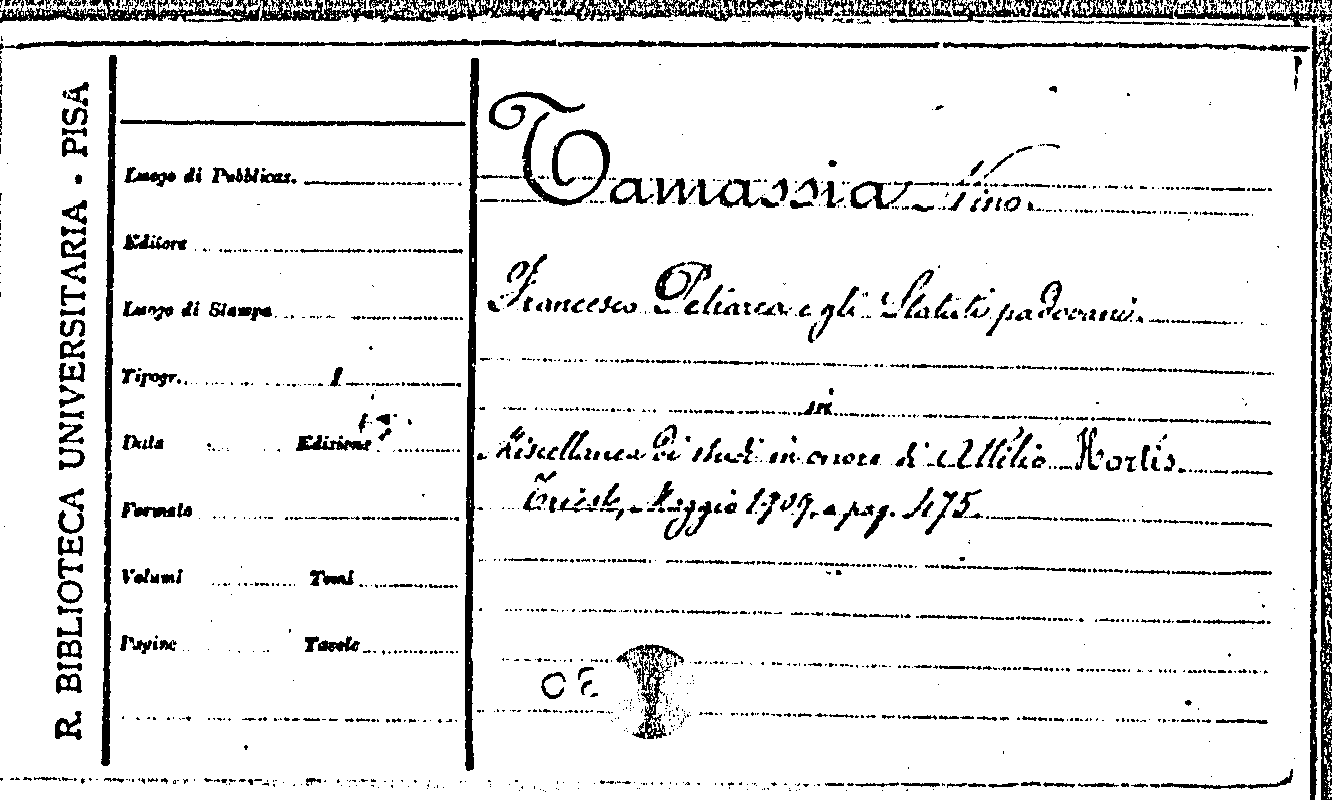 R. BIBLIOTECA UNIVERSITARIA - PISA
Luogo di Pubblicaz.
Editore
Luogo di Stampa
Tipogr.
Data Edizione
Formato
Volumi Tomi
Pagine Tavole
Tamassia Nino.
Francesco Petrarca e gli Statuti padovani.
in
Miscellanea di studi in onore di Attilio Hortis.
Trieste, Maggio 1909, a pag. 475.